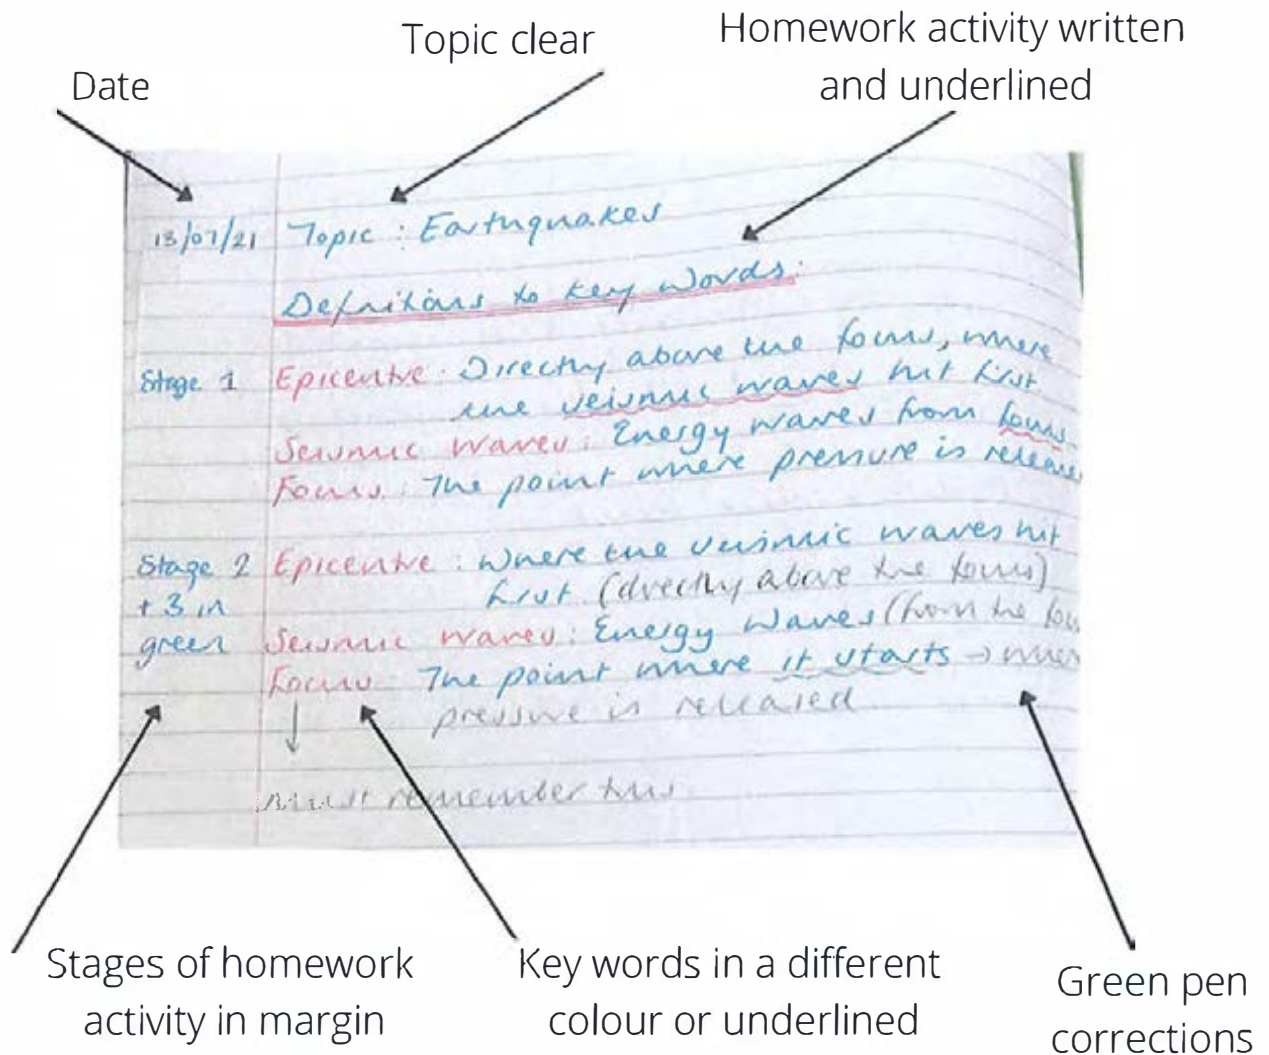 Topic clear
Homework activity written
and underlined
Date
13/07/21 Topic : Earthquakes
Definitions to key words:
Stage 1 Epicentre : Directly above the focus, where
the seismic waves hit first
Seismic waves : Energy waves from focus.
Focus : The point where pressure is
Stage 2 Epicentre : Where the seismic waves hit
+ 3 in first (directly above the focus)
green Seismic waves : Energy waves (from the
Focus : The point where it starts →
pressure is released
↓
Must remember this
Stages of homework
activity in margin
Key words in a different
colour or underlined
Green pen
corrections